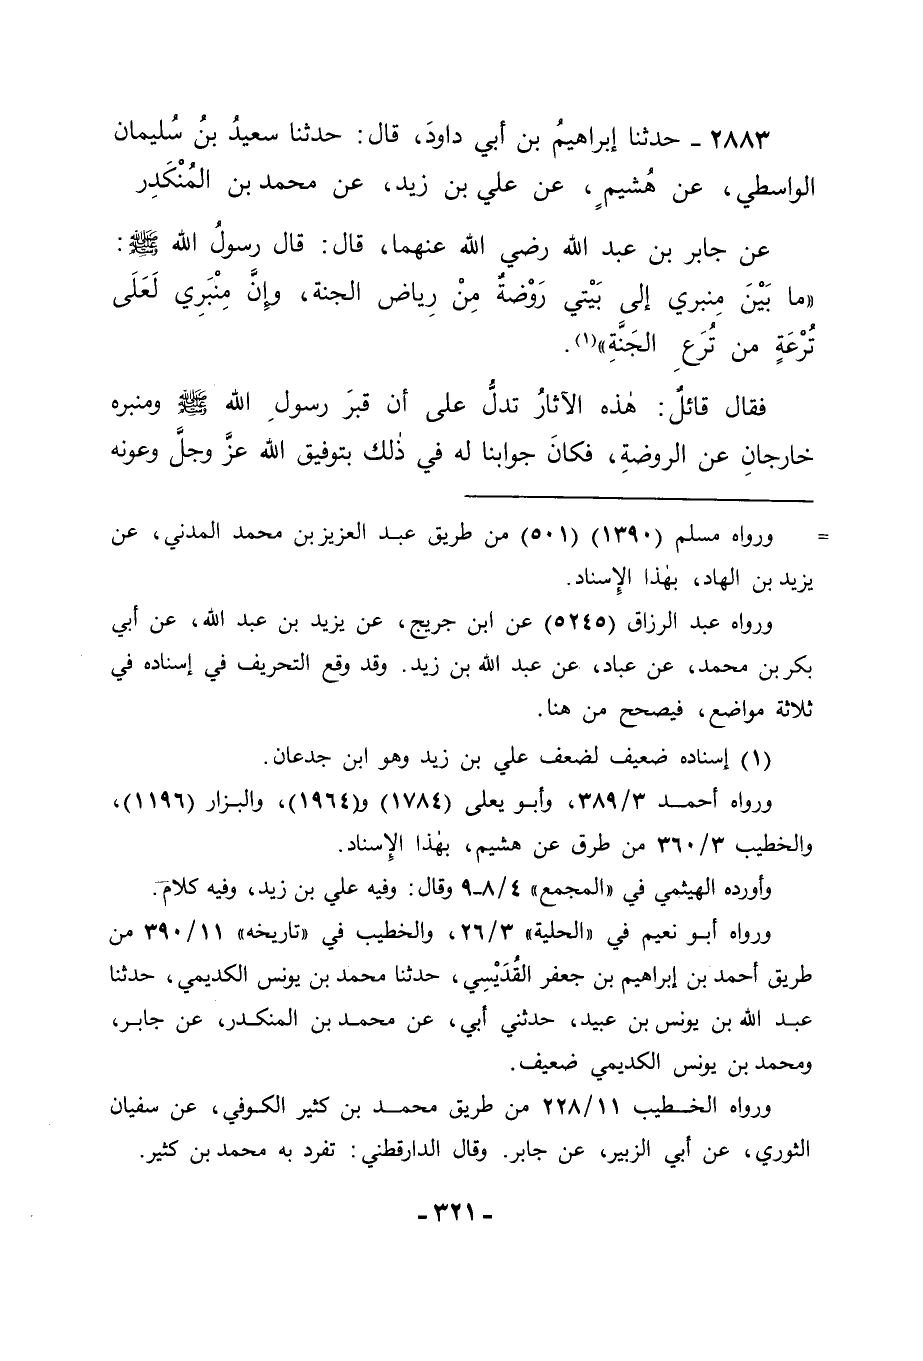 ٢٨٨٣ ـ حدثنا إبراهيمُ بن أبي داودَ، قال: حدثنا سعيدُ بنُ سُليمان
الواسطي، عن هُشيمٍ، عن علي بن زيد، عن محمد بن المُنْكَدِر
عن جابر بن عبد الله رضي الله عنهما، قال: قال رسولُ الله ﷺ:
«ما بَيْنَ مِنبري إلى بَيْتي رَوْضةٌ مِنْ رِياض الجنة، وإنَّ مِنْبَرِي لَعَلَى
تُرْعَةٍ من تُرَعِ الجَنَّةِ»(١).
فقال قائلٌ: هٰذه الآثارُ تدلُّ على أن قبرَ رسولِ الله ﷺ ومنبره
خارجانِ عن الروضةِ، فكانَ جوابنا له في ذٰلك بتوفيق الله عزَّ وجلَّ وعونه
= ورواه مسلم (١٣٩٠) (٥٠١) من طريق عبد العزيز بن محمد المدني، عن
يزيد بن الهاد، بهٰذا الإِسناد.
ورواه عبد الرزاق (٥٢٤٥) عن ابن جريج، عن يزيد بن عبد الله، عن أبي
بكر بن محمد، عن عباد، عن عبد الله بن زيد. وقد وقع التحريف في إسناده في
ثلاثة مواضع، فيصحح من هنا.
(١) إسناده ضعيف لضعف علي بن زيد وهو ابن جدعان.
ورواه أحمد ٣٨٩/٣، وأبو يعلى (١٧٨٤) و(١٩٦٤)، والبزار (١١٩٦)،
والخطيب ٣٦٠/٣ من طرق عن هشيم، بهٰذا الإِسناد.
وأورده الهيثمي في «المجمع» ٨/٤ـ٩ وقال: وفيه علي بن زيد، وفيه كلام.
ورواه أبو نعيم في «الحلية» ٢٦/٣، والخطيب في «تاريخه» ٣٩٠/١١ من
طريق أحمد بن إبراهيم بن جعفر القُدَيْسِي، حدثنا محمد بن يونس الكديمي، حدثنا
عبد الله بن يونس بن عبيد، حدثني أبي، عن محمد بن المنكدر، عن جابر،
ومحمد بن يونس الكديمي ضعيف.
ورواه الخطيب ٢٢٨/١١ من طريق محمد بن كثير الكوفي، عن سفيان
الثوري، عن أبي الزبير، عن جابر. وقال الدارقطني: تفرد به محمد بن كثير.
ـ ٣٢١ ـ